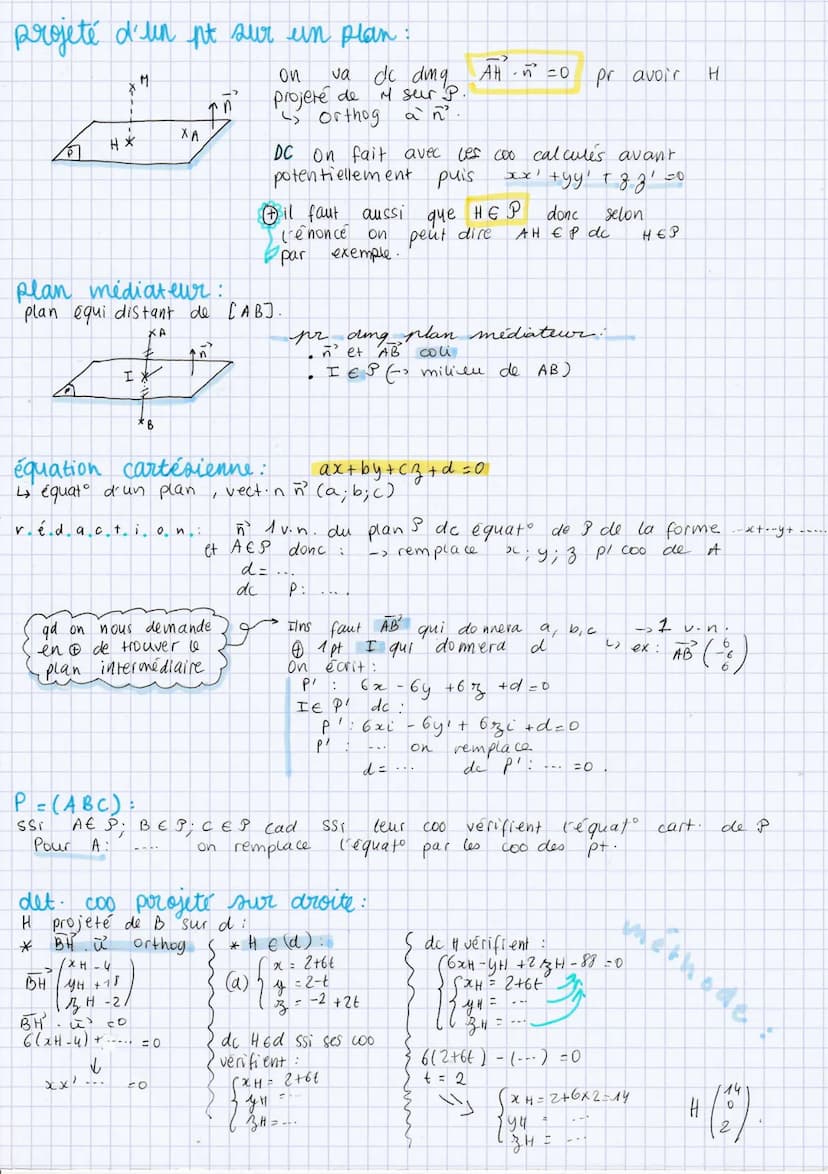 projeté d'un pt sur un plan :
M
n⃗
H
A
P
on va dc dmq AH⃗ · n⃗ = 0 pr avoir H
projeté de M sur P.
↳ orthog à n⃗.
DC on fait avec les coo calculés avant
potentiellement puis xx' + yy' + zz' = 0
⊕ il faut aussi que H ∈ P donc selon
l'énoncé on peut dire AH ∈ P dc H ∈ P
par exemple.
plan médiateur :
plan équidistant de [AB].
A
n⃗
I
P
B
pr dmq plan médiateur :
• n⃗ et AB⃗ coli
• I ∈ P (→ milieu de AB)
équation cartésienne : ax+by+cz+d=0
↳ équat° d'un plan, vect. n n⃗ (a;b;c)
r.é.d.a.c.t.i.o.n. : n⃗ 1 v.n. du plan P dc équat° de P de la forme ...x+...y+ .....
et A∈P donc : → remplace x; y; z p/ coo de A
d = ...
dc P : ....
qd on nous demande
en ⊕ de trouver le
plan intermédiaire
→ Ilns faut AB⃗ qui donnera a, b, c → 1 v.n.
⊕ 1pt I qui donnera d ↳ ex : AB⃗ (6 -6 6)
on écrit :
P' : 6x - 6y + 6z + d = 0
I ∈ P' dc :
P' : 6xi - 6yi + 6zi + d = 0
P' : ... on remplace
d = ... dc P' : ... = 0.
P = (ABC) :
ssi A∈P; B∈P; C∈P cad ssi leur coo vérifient l'équat° cart. de P
Pour A : .... on remplace l'équat° par les coo des pt.
det. coo projeté sur droite :
méthode :
H projeté de B sur d :
* BH⃗ . u⃗ orthog
BH⃗ (xH - 4
yH + 18
zH - 2)
BH⃗ · u⃗ = 0
6(xH-4) + ..... = 0
↓
xx' ... = 0
* H ∈ (d) :
(d) { x = 2+6t
y = 2-t
z = -2+2t
dc H∈d ssi ses coo
vérifient :
{ xH = 2+6t
yH = ...
zH = ...
dc H vérifient :
{ 6xH - yH + 2zH - 88 = 0
{ xH = 2+6t
yH = ...
zH = ...
6(2+6t) - (...) = 0
t = 2
⇒ { xH = 2+6×2 = 14
yH = ...
zH = ...
H (14
0
2).